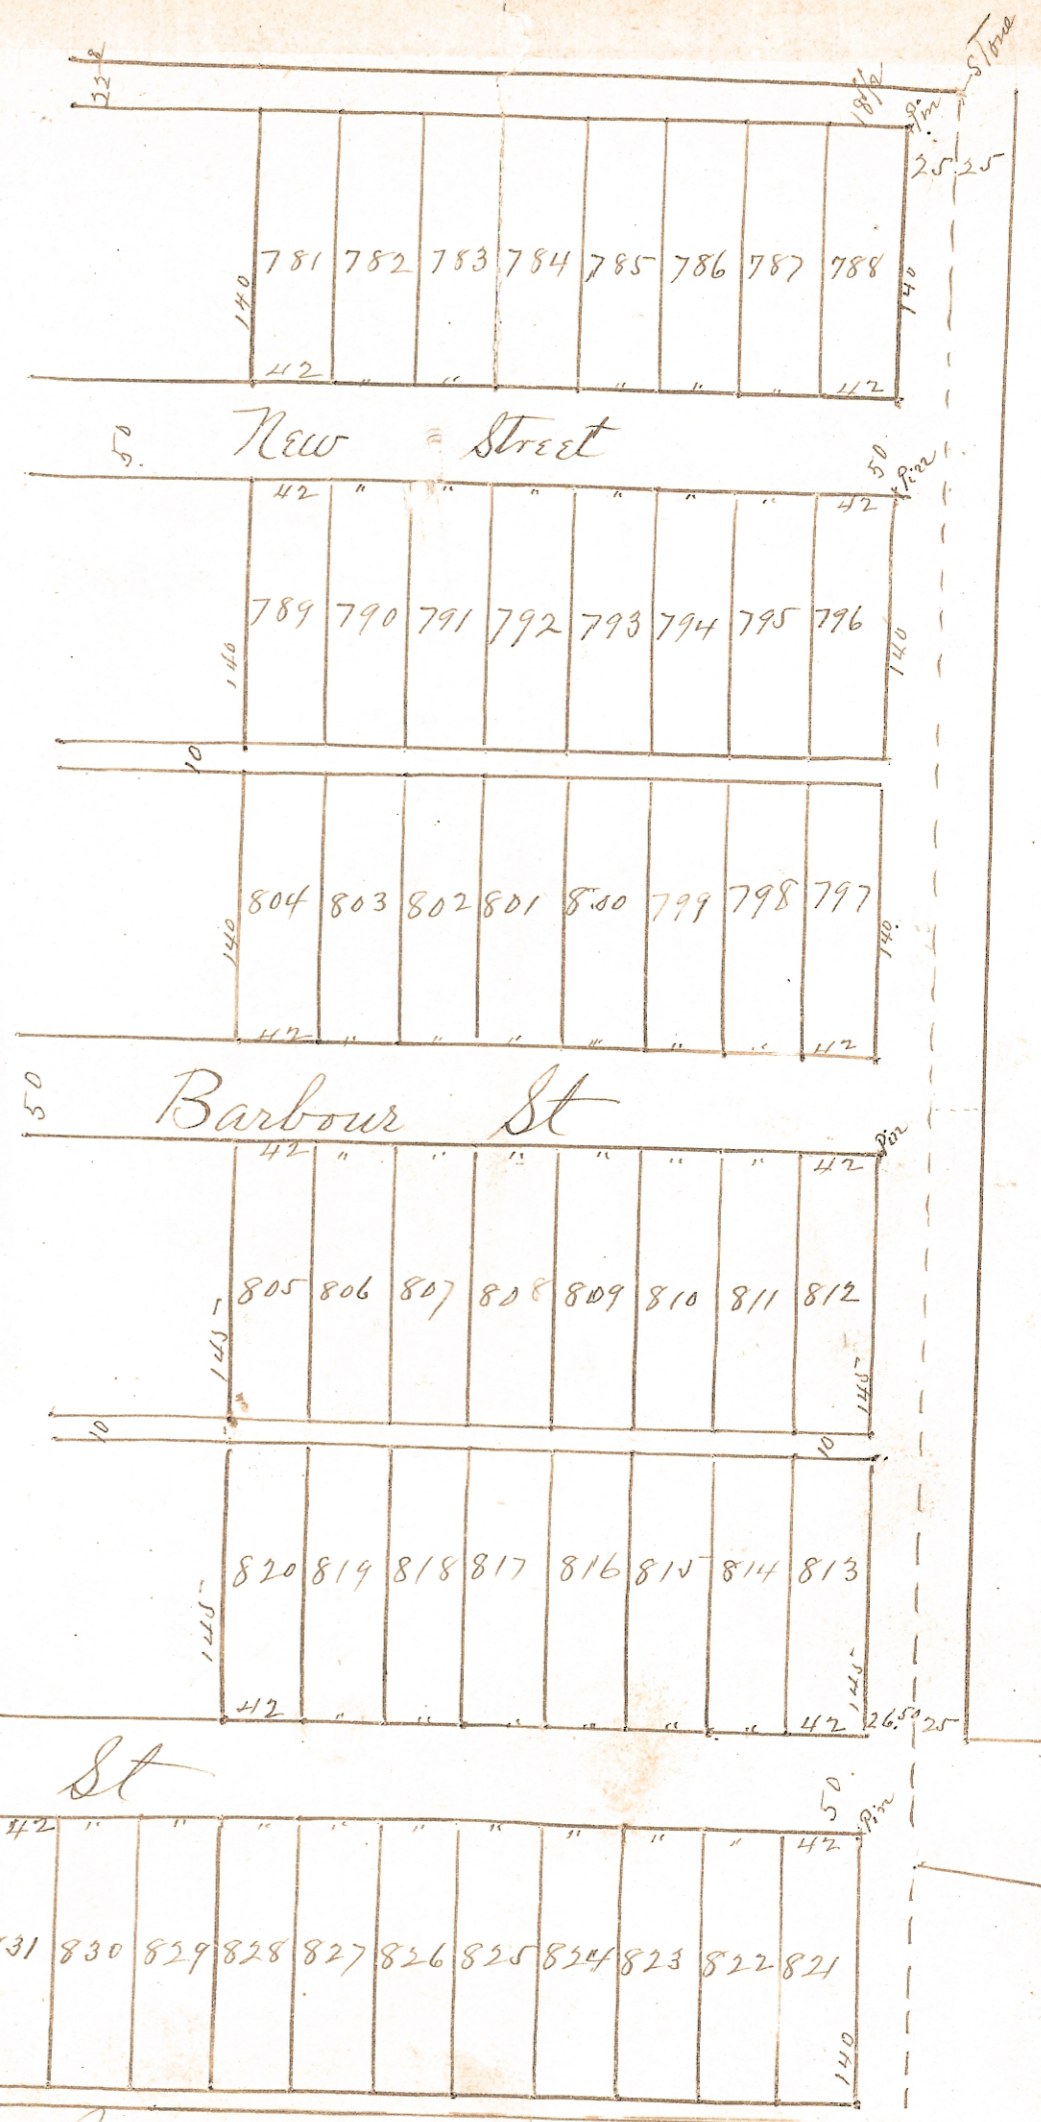 Stone
22
Pin
25 25
781 782 783 784 785 786 787 788
140 140
42 " " " " " 42
New Street
50 50
Pin
42 " " " " " " 42
789 790 791 792 793 794 795 796
140 140
10
804 803 802 801 800 799 798 797
140 140
42 " " " " " " 42
Barbour St
50
Pin
42 " " " " " " 42
805 806 807 808 809 810 811 812
145 145
10 10
820 819 818 817 816 815 814 813
145 145
42 " " " " " " 42 26.50 25
St
50
Pin
42 " " " " " " " " " 42
31 830 829 828 827 826 825 824 823 822 821
140